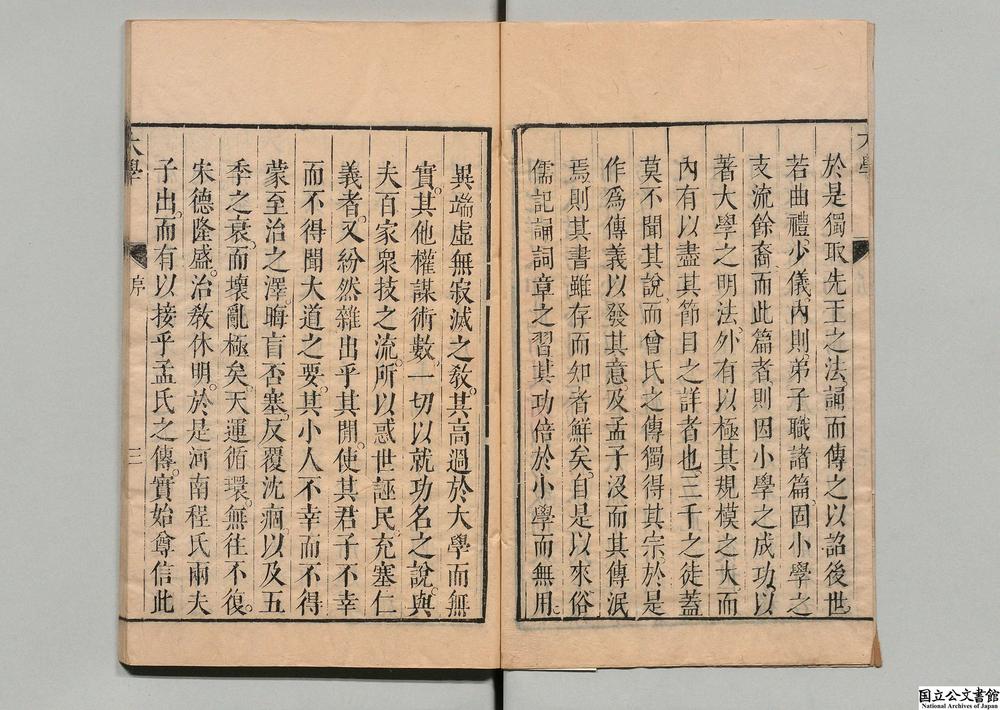 大學
於是獨取先王之法誦而傳之以詔後世。
若曲禮。少儀。內則。弟子職諸篇。固小學之
支流餘裔。而此篇者。則因小學之成功。以
著大學之明法。外有以極其規模之大。而
內有以盡其節目之詳者也。三千之徒。蓋
莫不聞其說。而曾氏之傳獨得其宗。於是
作爲傳義。以發其意。及孟子沒而其傳泯
焉。則其書雖存。而知者鮮矣。自是以來。俗
儒記誦詞章之習。其功倍於小學而無用。
異端虛無寂滅之敎。其高過於大學而無
實。其他權謀術數。一切以就功名之說。與
夫百家衆技之流。所以惑世誣民。充塞仁
義者。又紛然雜出乎其閒。使其君子不幸
而不得聞大道之要。其小人不幸而不得
蒙至治之澤。晦盲否塞。反覆沈痼。以及五
季之衰。而壞亂極矣。天運循環。無往不復。
宋德隆盛。治敎休明。於是河南程氏兩夫
子出。而有以接乎孟氏之傳。實始尊信此
大學
序
三
国立公文書館
National Archives of Japan